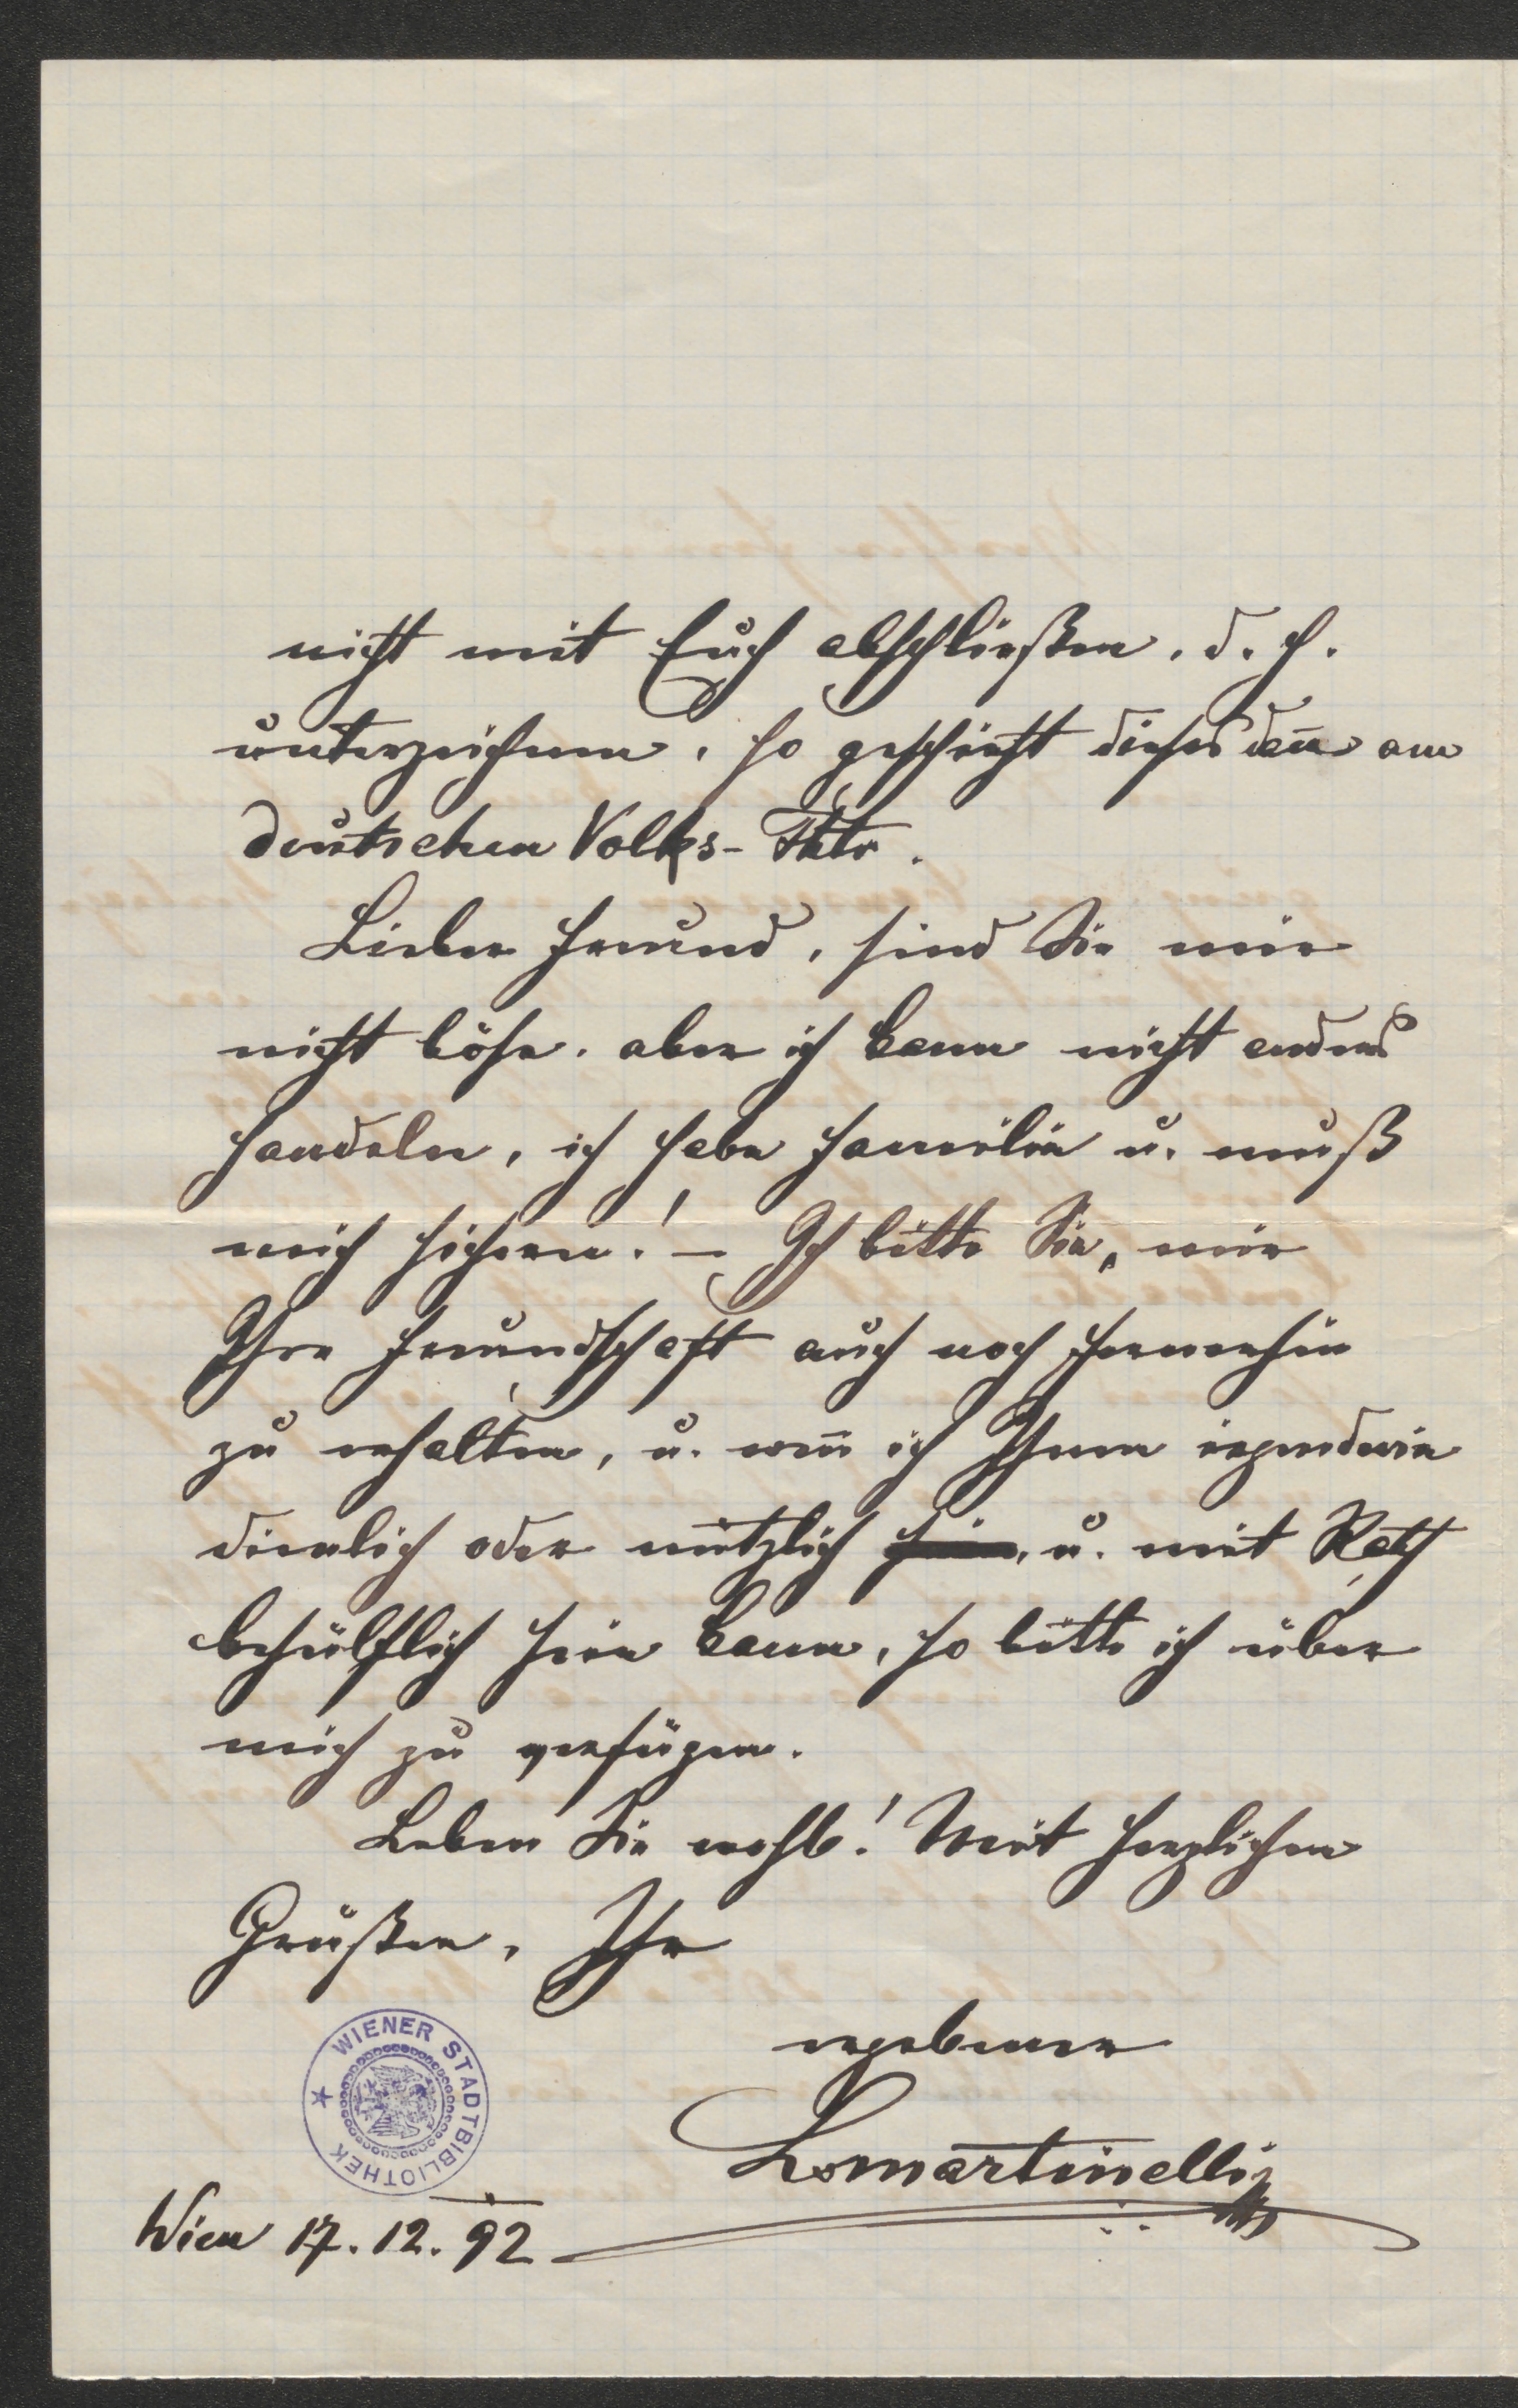 nicht mit Euch abschließen, d. h.
unterzeichnen, so geschieht dieses dan̄ am
deutschen Volks-Thtr.
Lieber Freund, sind Sie mir
nicht böse, aber ich kann nicht anders
handeln, ich habe Familie u. muß
mich sichern! – Ich bitte Sie, mir
Ihre Freundschaft auch noch fernerhin
zu erhalten, u. wen̄ ich Ihnen irgendwie
dienlich oder nützlich sein, u. mit Rath
behülflich sein kann, so bitte ich über
mich zu verfügen.
Leben Sie wohl! Mit herzlichen
Grüßen, Ihr
ergebener
LMartinelli
WIENER STADTBIBLIOTHEK
Wien 17.12.92